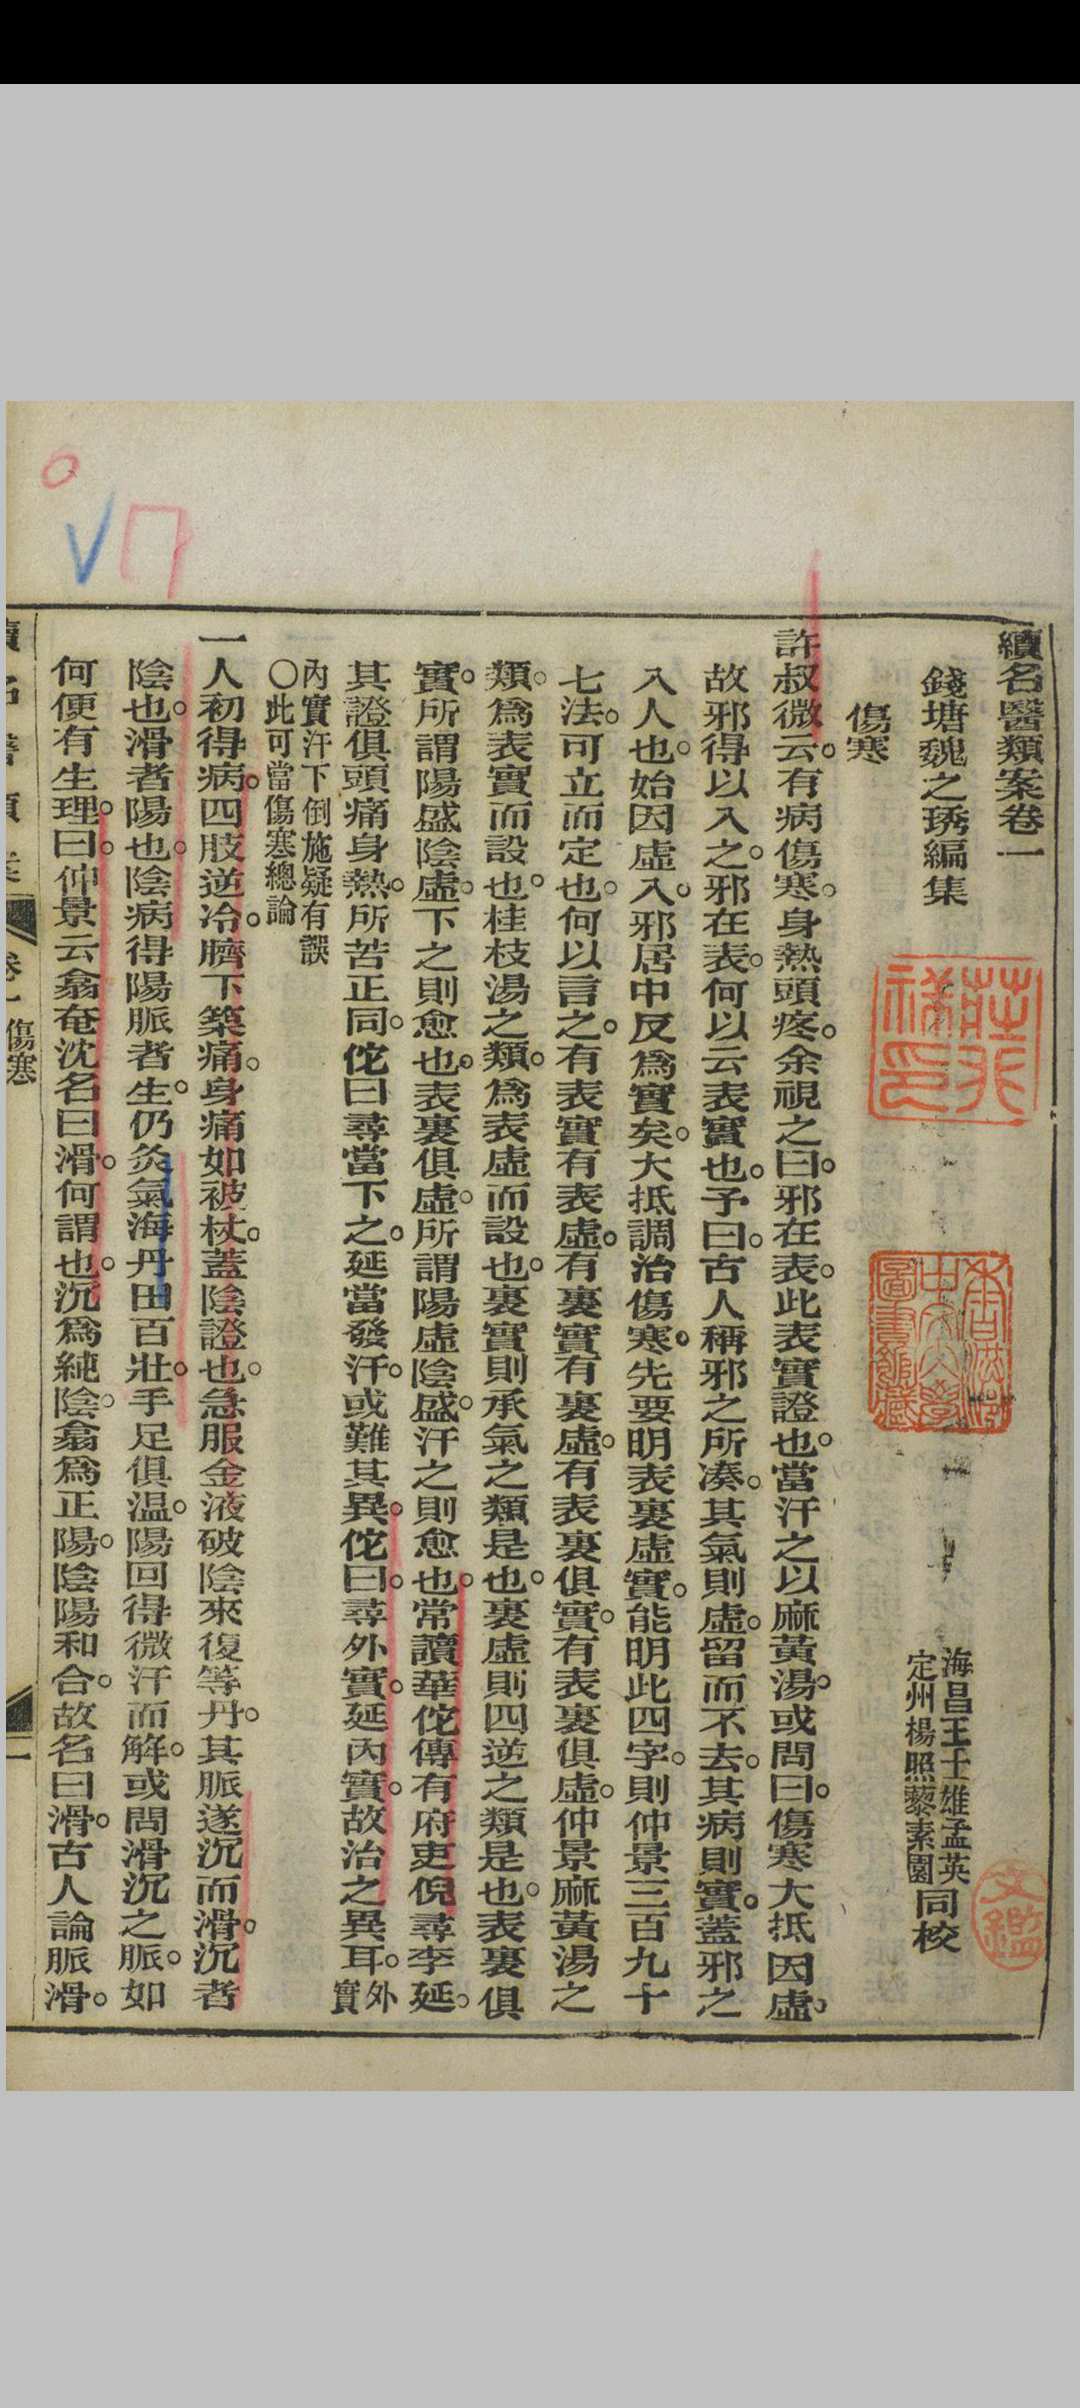 續名醫類案卷一
錢塘魏之琇編集
海昌王士雄孟英
定州楊照藜素園
同校
傷寒
許叔微云。有病傷寒。身熱頭疼。余視之曰。邪在表。此表實證也。當汗之以麻黃湯。或問曰。傷寒大抵因虛。
故邪得以入之。邪在表。何以云表實也。予曰。古人稱邪之所凑。其氣則虛。留而不去。其病則實。蓋邪之
入人也。始因虛入。邪居中反爲實矣。大抵調治傷寒。先要明表裏虛實。能明此四字。則仲景三百九十
七法。可立而定也。何以言之。有表實有表虛。有裏實有裏虛。有表裏俱實。有表裏俱虛。仲景麻黃湯之
類。爲表實而設也。桂枝湯之類。爲表虛而設也。裏實則承氣之類是也。裏虛則四逆之類是也。表裏俱
實。所謂陽盛陰虛。下之則愈也。表裏俱虛。所謂陽虛陰盛。汗之則愈也。常讀華佗傳有府吏倪尋李延。
其證俱頭痛身熱。所苦正同。佗曰尋當下之。延當發汗。或難其異。佗曰。尋外實。延內實。故治之異耳。外
實
內實汗下倒施疑有誤
〇此可當傷寒總論
一人初得病。四肢逆冷。臍下築痛。身痛如被杖。蓋陰證也。急服金液破陰來復等丹。其脈遂沉而滑。沉者
陰也。滑者陽也。陰病得陽脈者生。仍灸氣海丹田百壯。手足俱温。陽回得微汗而解。或問滑沉之脈。如
何便有生理。曰。仲景云翕奄沈名曰滑。何謂也。沉爲純陰。翕爲正陽。陰陽和合。故名曰滑。古人論脈滑。
卷一 傷寒
一